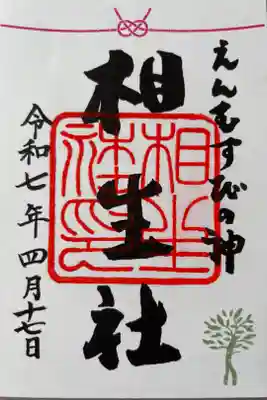 えんむすびの神
相生社
相生社印
令和七年四月十七日